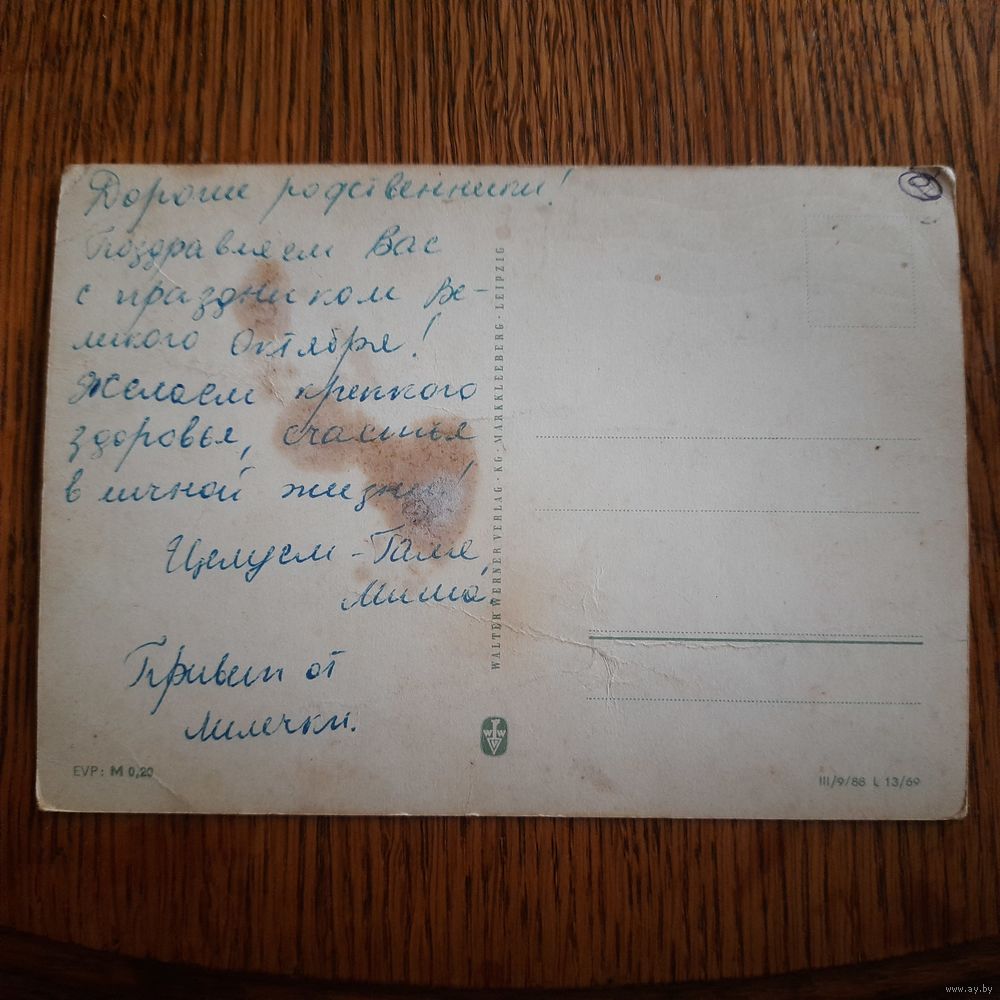 Дорогие родственники!
Поздравляем Вас
с праздником Ве-
ликого Октября!
Желаем крепкого
здоровья, счастья
в личной жизни!
Целуем - Галя,
Миша,
Привет от
Лилечки.
EVP: M 0,20
WALTER WERNER VERLAG · KG · MARKKLEEBERG - LEIPZIG
III/9/88 L 13/69
www.ay.by